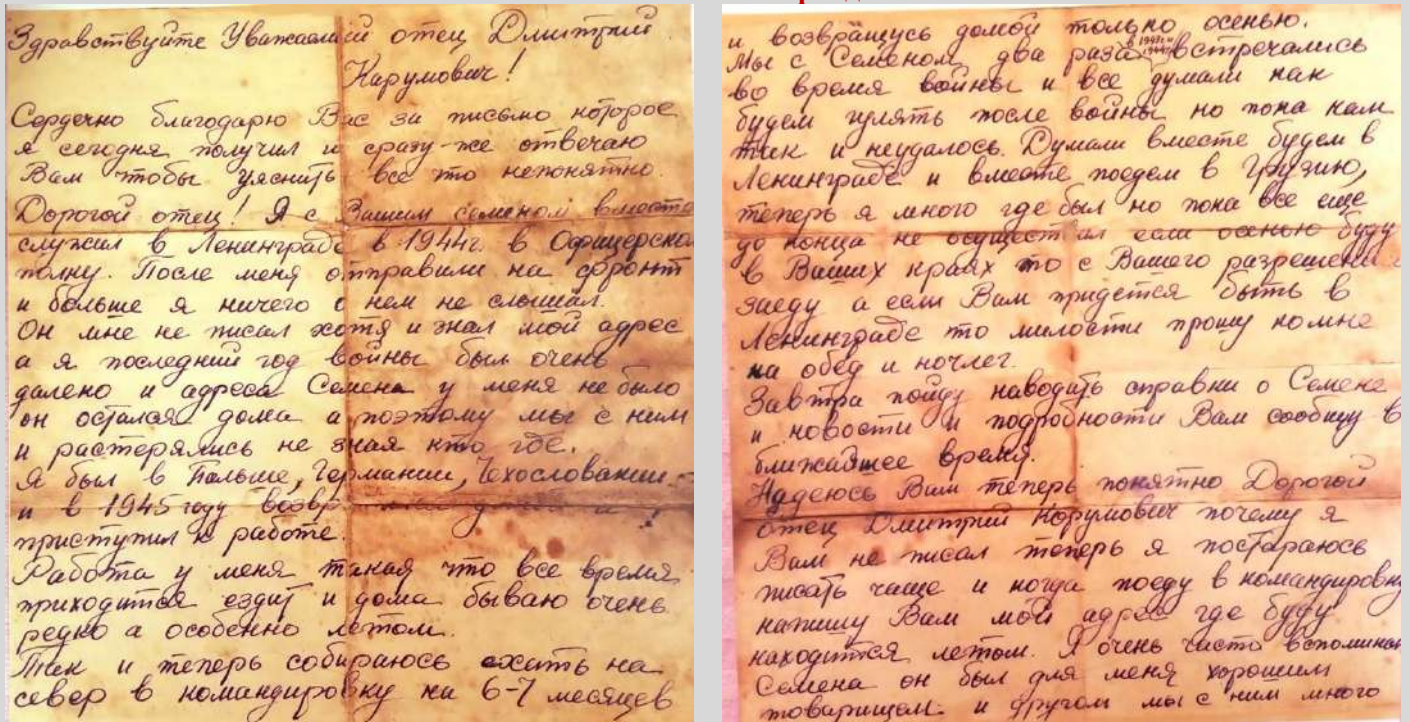 Здравствуйте Уважаемый отец Дмитрий
Карумович!
Сердечно благодарю Вас за письмо которое
я сегодня получил и сразу-же отвечаю
Вам чтобы уяснить все то непонятно.
Дорогой отец! Я с Вашим семеном вместе
служил в Ленинграде в 1944г. в Офицерско
полку. После меня отправили на фронт
и больше я ничего о нем не слышал.
Он мне не писал хотя и знал мой адрес
а я последний год войны был очень
далеко и адреса Семена у меня не было
он остался дома а поэтому мы с ним
и растерялись не зная кто где.
Я был в Польше, Германии, Чехословакии
и в 1945 году возвр
приступил к работе.
Работа у меня такая что все время
приходится ездит и дома бываю очень
редко а особенно летом.
Так и теперь собираюсь ехать на
север в командировку на 6-7 месяцев
и возвращусь домой только осенью.
Мы с Семеном два раза в 1943г. и 1944г. встречались
во время войны и все думали как
будем гулять после войны но пока нам
так и неудалось. Думали вместе будем в
Ленинграде и вместе поедем в Грузию,
теперь я много где был но пока все еще
до конца не осуществил если осенью буду
в Ваших краях то с Вашего разрешени
заеду а если Вам придется быть в
Ленинграде то милости прошу ко мне
на обед и ночлег.
Завтра пойду наводить справки о Семене
и новости и подробности Вам сообщу в
ближайшее время.
Надеюсь Вам теперь понятно Дорогой
отец Дмитрий Корумович почему я
Вам не писал теперь я постараюсь
писать чаще и когда поеду в командировку
напишу Вам мой адрес где буду
находится летом. Я очень часто вспоминаю
Семена он был для меня хорошим
товарищем и другом мы с ним много